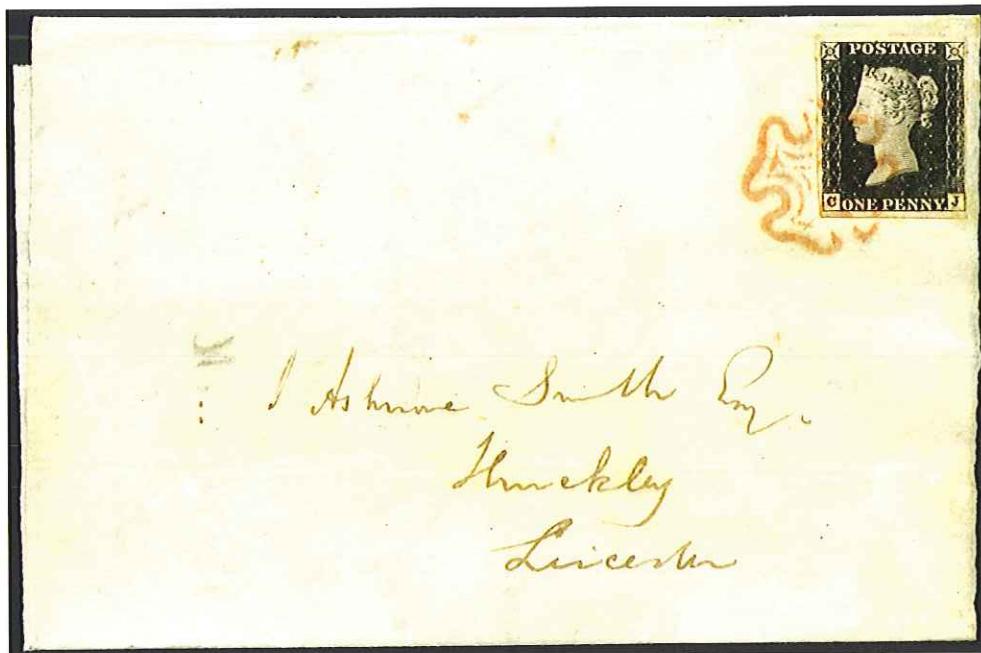 POSTAGE
C ONE PENNY J
J Ashmore Smith Esq.
Hinckley
Leicester